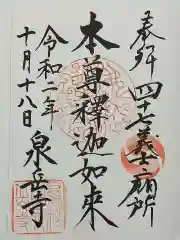 奉拝
四十七義士廟所
本尊釋迦如来
令和二年
十月十八日
泉岳寺